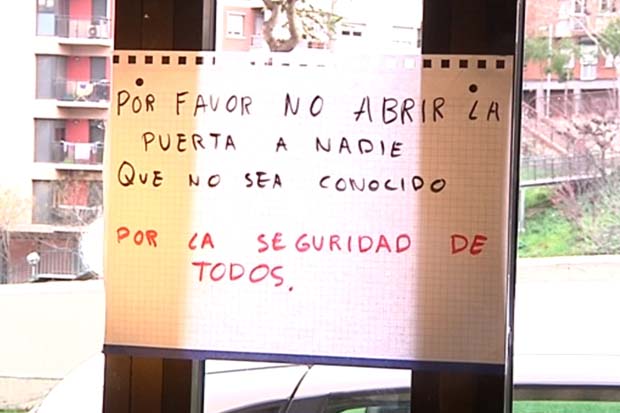 POR FAVOR NO ABRIR LA
PUERTA A NADIE
QUE NO SEA CONOCIDO
POR LA SEGURIDAD DE
TODOS.